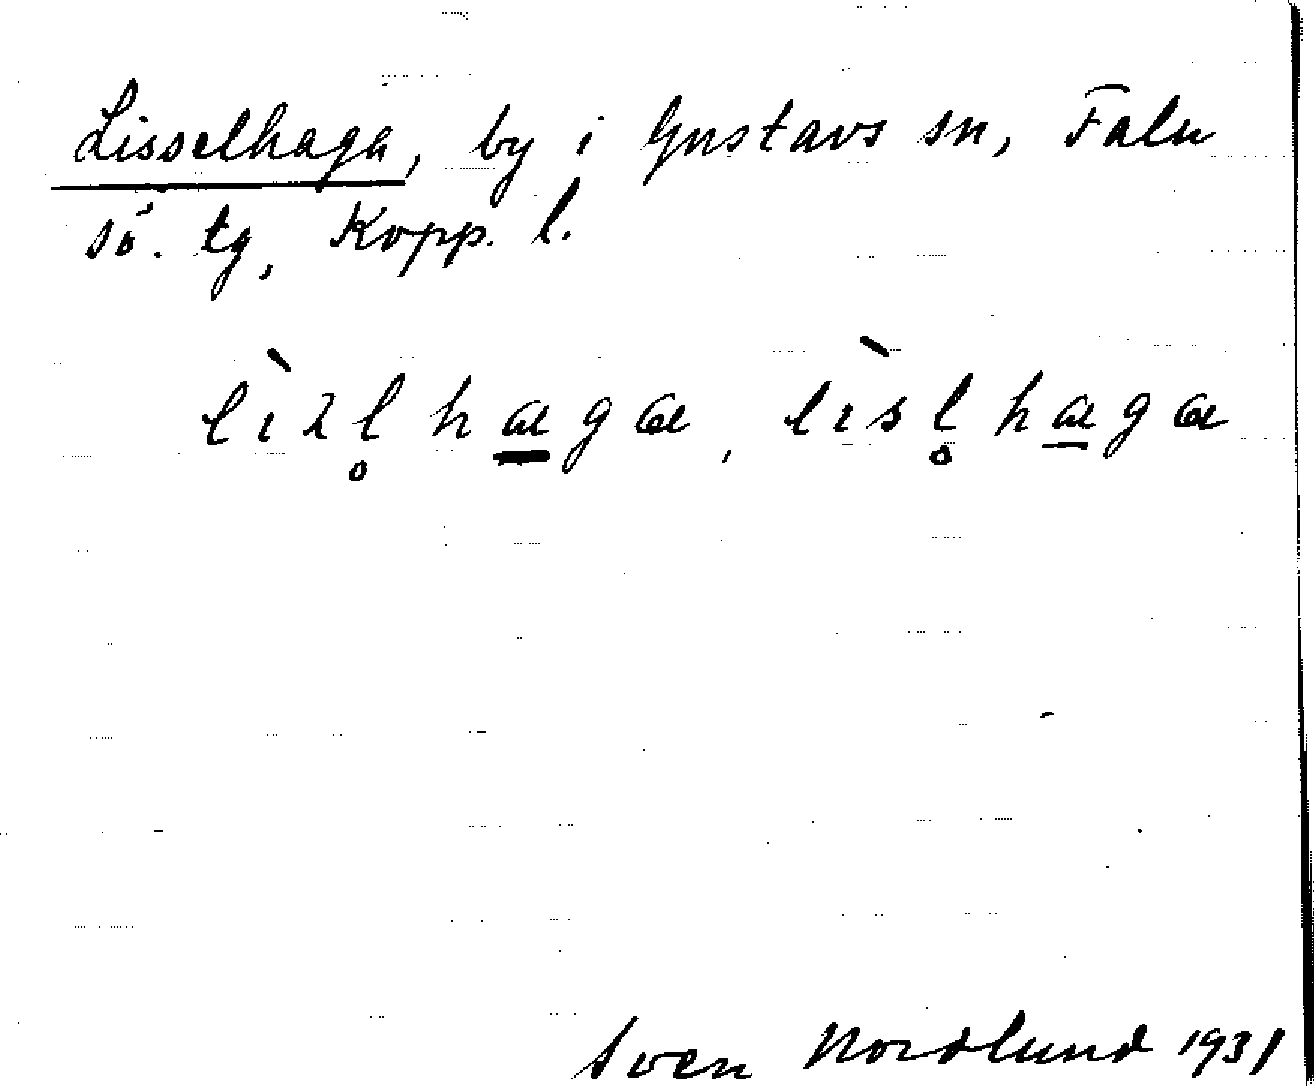 Lisselhaga, by i Gustavs sn, Falu
sö. tg, Kopp. l.
lìzl̥ha̲ga, lìsl̥ha̲ga
Sven Nordlund 1931